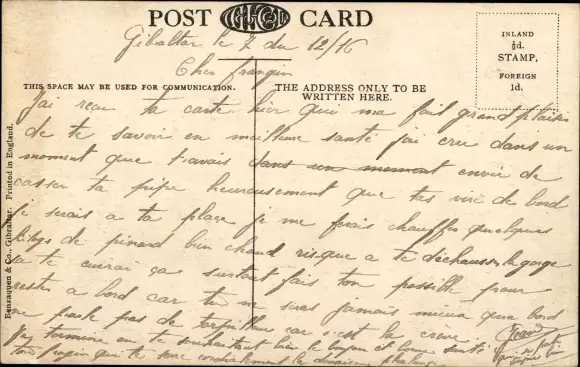 POST CARD
Gibraltar le 7 du 12/16
Cher frangin
THIS SPACE MAY BE USED FOR COMMUNICATION.
THE ADDRESS ONLY TO BE
WRITTEN HERE.
INLAND
½d.
STAMP,
FOREIGN
1d.
J'ai recu ta carte hier qui ma fait grand plaisir
de te savoir en meilleure santé j'ai cru dans un
moment que t'avais dans un moment envie de
casser ta pipe heureusement que tas viré de bord
Je serais a ta place je me ferais chauffer quelques
de pinard bien chaud risque a te déchausser la gorge
sa te ça surtout fais ton possible pour
rester a bord car tu ne seras jamais mieux qua bord
ne parle pas de car c'est la
termine en te souhaitant bien le et bonne santé
ton frangin qui te serre cordialement la
Benzaquen & Co., Gibraltar. Printed in England.